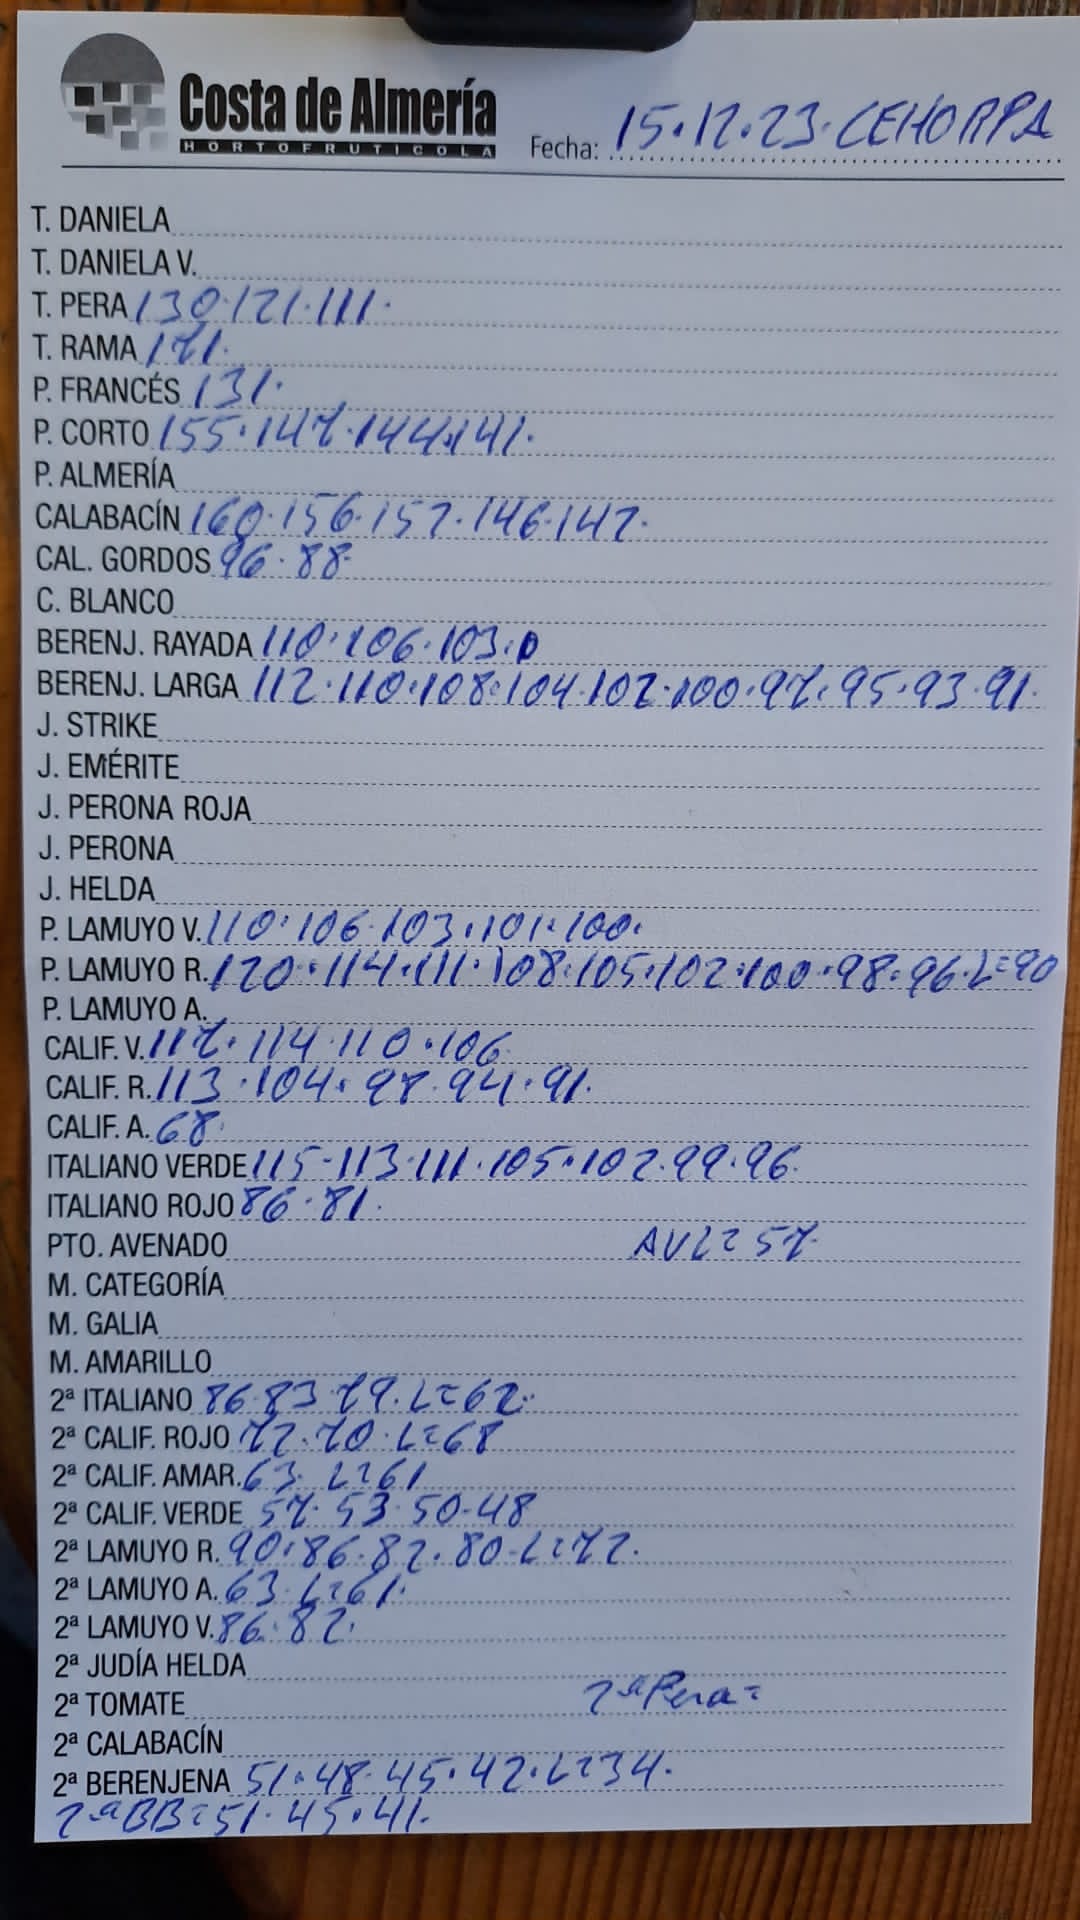 Costa de Almería
HORTOFRUTICOLA
Fecha: 15.12.23. CEHORPA
T. DANIELA
T. DANIELA V.
T. PERA 130.121.111.
T. RAMA 171.
P. FRANCÉS 131.
P. CORTO 155.147.144.141.
P. ALMERÍA
CALABACÍN 160.156.152.146.142.
CAL. GORDOS 96.88.
C. BLANCO
BERENJ. RAYADA 110.106.103.
BERENJ. LARGA 112.110.108.104.102.100.97.95.93.91.
J. STRIKE
J. EMÉRITE
J. PERONA ROJA
J. PERONA
J. HELDA
P. LAMUYO V. 110.106.103.101.100.
P. LAMUYO R. 120.114.111.108.105.102.100.98.96.L=90
P. LAMUYO A.
CALIF. V. 117.114.110.106
CALIF. R. 113.104.98.94.91.
CALIF. A. 68.
ITALIANO VERDE 115-113.111.105.102.99.96.
ITALIANO ROJO 86.81.
PTO. AVENADO AVL=57.
M. CATEGORÍA
M. GALIA
M. AMARILLO
2ª ITALIANO 86.83.79.L=62.
2ª CALIF. ROJO 72.70.L=68
2ª CALIF. AMAR. 63. L=61
2ª CALIF. VERDE 57.53.50-48
2ª LAMUYO R. 90.86.82.80-L=72.
2ª LAMUYO A. 63.L=61.
2ª LAMUYO V. 86.82.
2ª JUDÍA HELDA
2ª TOMATE 2ª Pera=
2ª CALABACÍN
2ª BERENJENA 51.48.45.42.L=34.
2ªBB=51.45.41.